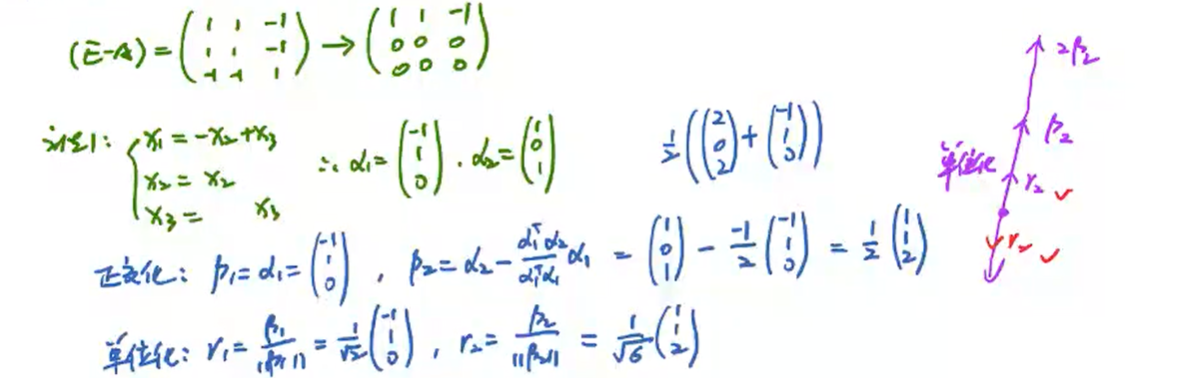 (E-A) = \begin{pmatrix} 1 & 1 & -1 \\ 1 & 1 & -1 \\ -1 & -1 & 1 \end{pmatrix} → \begin{pmatrix} 1 & 1 & -1 \\ 0 & 0 & 0 \\ 0 & 0 & 0 \end{pmatrix}
2β₂
β₂
单位化
r₂ ✓
r₂ ✓
法1: \begin{cases} x₁ = -x₂ + x₃ \\ x₂ = x₂ \\ x₃ = x₃ \end{cases} ∴ α₁ = \begin{pmatrix} -1 \\ 1 \\ 0 \end{pmatrix} . α₂ = \begin{pmatrix} 1 \\ 0 \\ 1 \end{pmatrix} \frac{1}{2}\left(\begin{pmatrix} 2 \\ 0 \\ 2 \end{pmatrix} + \begin{pmatrix} -1 \\ 1 \\ 0 \end{pmatrix}\right)
正交化: β₁ = α₁ = \begin{pmatrix} -1 \\ 1 \\ 0 \end{pmatrix} , β₂ = α₂ - \frac{α₁^T α₂}{α₁^T α₁} α₁ = \begin{pmatrix} 1 \\ 0 \\ 1 \end{pmatrix} - \frac{-1}{2} \begin{pmatrix} -1 \\ 1 \\ 0 \end{pmatrix} = \frac{1}{2} \begin{pmatrix} 1 \\ 1 \\ 2 \end{pmatrix}
单位化: r₁ = \frac{β₁}{||β₁||} = \frac{1}{\sqrt{2}} \begin{pmatrix} -1 \\ 1 \\ 0 \end{pmatrix} , r₂ = \frac{β₂}{||β₂||} = \frac{1}{\sqrt{6}} \begin{pmatrix} 1 \\ 1 \\ 2 \end{pmatrix}